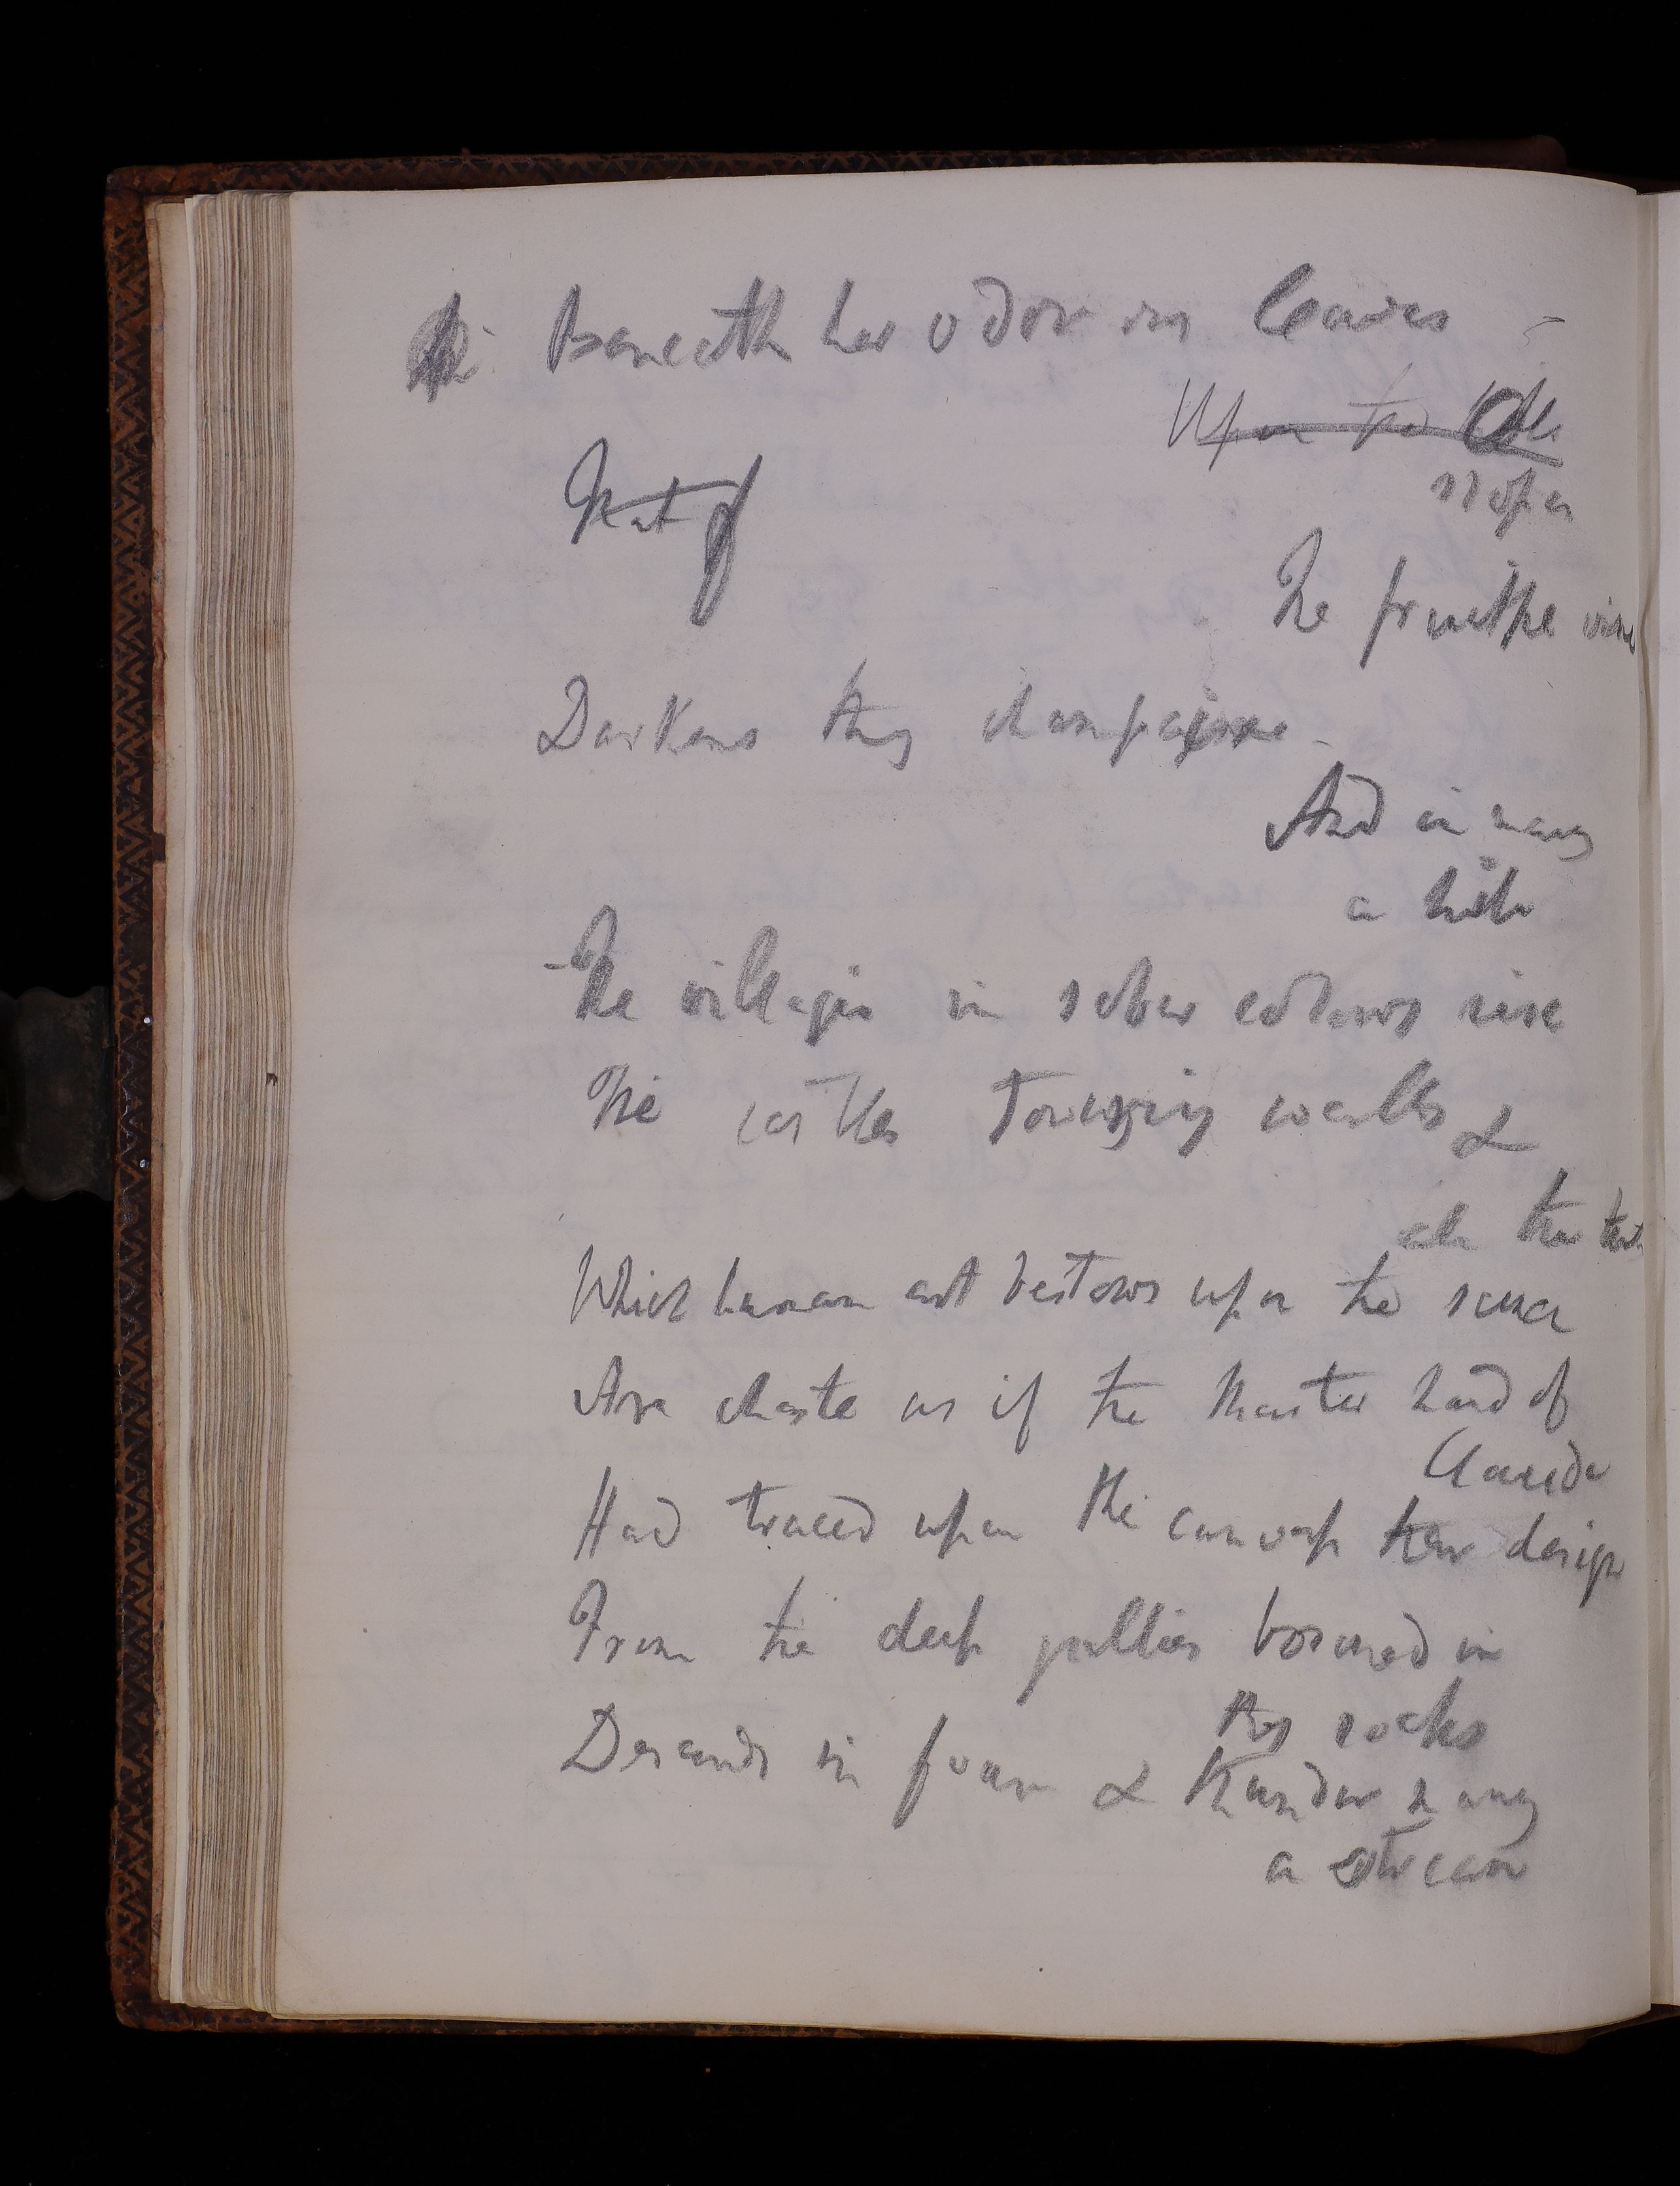 Beneath her odorous leaves
Upon the
slopes
That of
The purple vine
Darkens thy champaigne
And in many
a hill
The villages in sober colours rise
The castles towering walls &
all the tints
Which human art bestows upon the scene
Are chaste as if the Master hand of
Claude
Had traced upon the canvass their design
From the deep gullies bosomed in
thy rocks
Descends in foam & thunder many
a stream